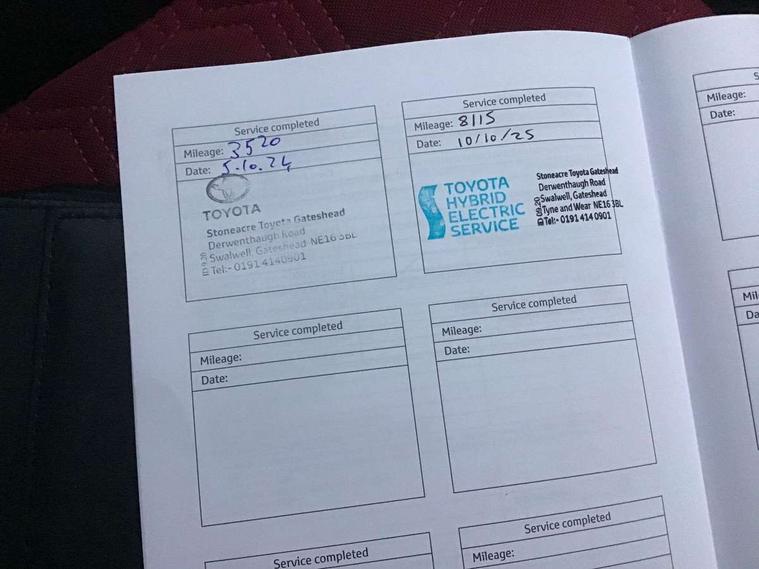 Service completed
Mileage: 3520
Date: 5.10.24
TOYOTA
Stoneacre Toyota Gateshead
Derwenthaugh Road
Swalwell, Gateshead NE16 3BL
Tel:- 0191 4140901
Service completed
Mileage: 8115
Date: 10/10/25
TOYOTA
HYBRID
ELECTRIC
SERVICE
Stoneacre Toyota Gateshead
Derwenthaugh Road
Swalwell, Gateshead
Tyne and Wear NE16 3BL
Tel:- 0191 414 0901
Service completed
Mileage:
Date:
Service completed
Mileage:
Date:
Service completed
Service completed
Mileage:
S
Mileage:
Date:
Mil
Da